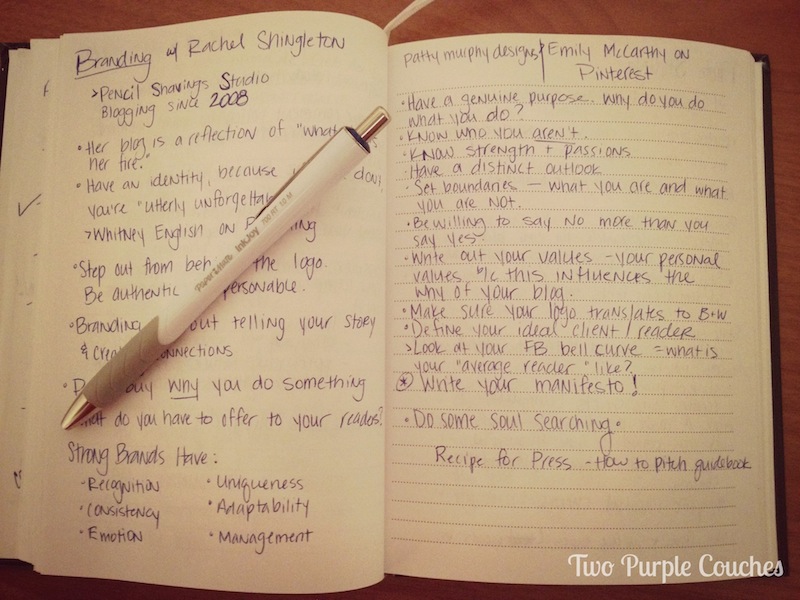 Branding w/ Rachel Shingleton
>Pencil Shavings Studio
Blogging since 2008
• Her blog is a reflection of "what
her fire."
• Have an identity, because
you're "utterly
>Whitney English on
• Step out from the logo.
Be authentic personable.
• Branding out telling your story
& connections
buy why you do something
what do you have to offer to your readers?
Strong Brands Have:
-Recognition
-Consistency
-Emotion
• Uniqueness
• Adaptability
• Management
PaperMate InkJoy
patty murphy designs | Emily McCarthy on
Pinterest
• Have a genuine purpose. Why do you do
what you do?
• Know who you aren't.
• Know strength + passions
• Have a distinct outlook
• Set boundaries — what you are and what
you are NOT.
• Be willing to say NO more than you
say yes.
• Write out your values - your personal
values b/c this influences the
why of your blog.
• Make sure your logo translates to B+W
• Define your ideal client / reader
>Look at your FB bell curve = what is
your "average reader" like?
* Write your manifesto!
• Do some soul searching.
Recipe for Press - How to Pitch guidebook
Two Purple Couches